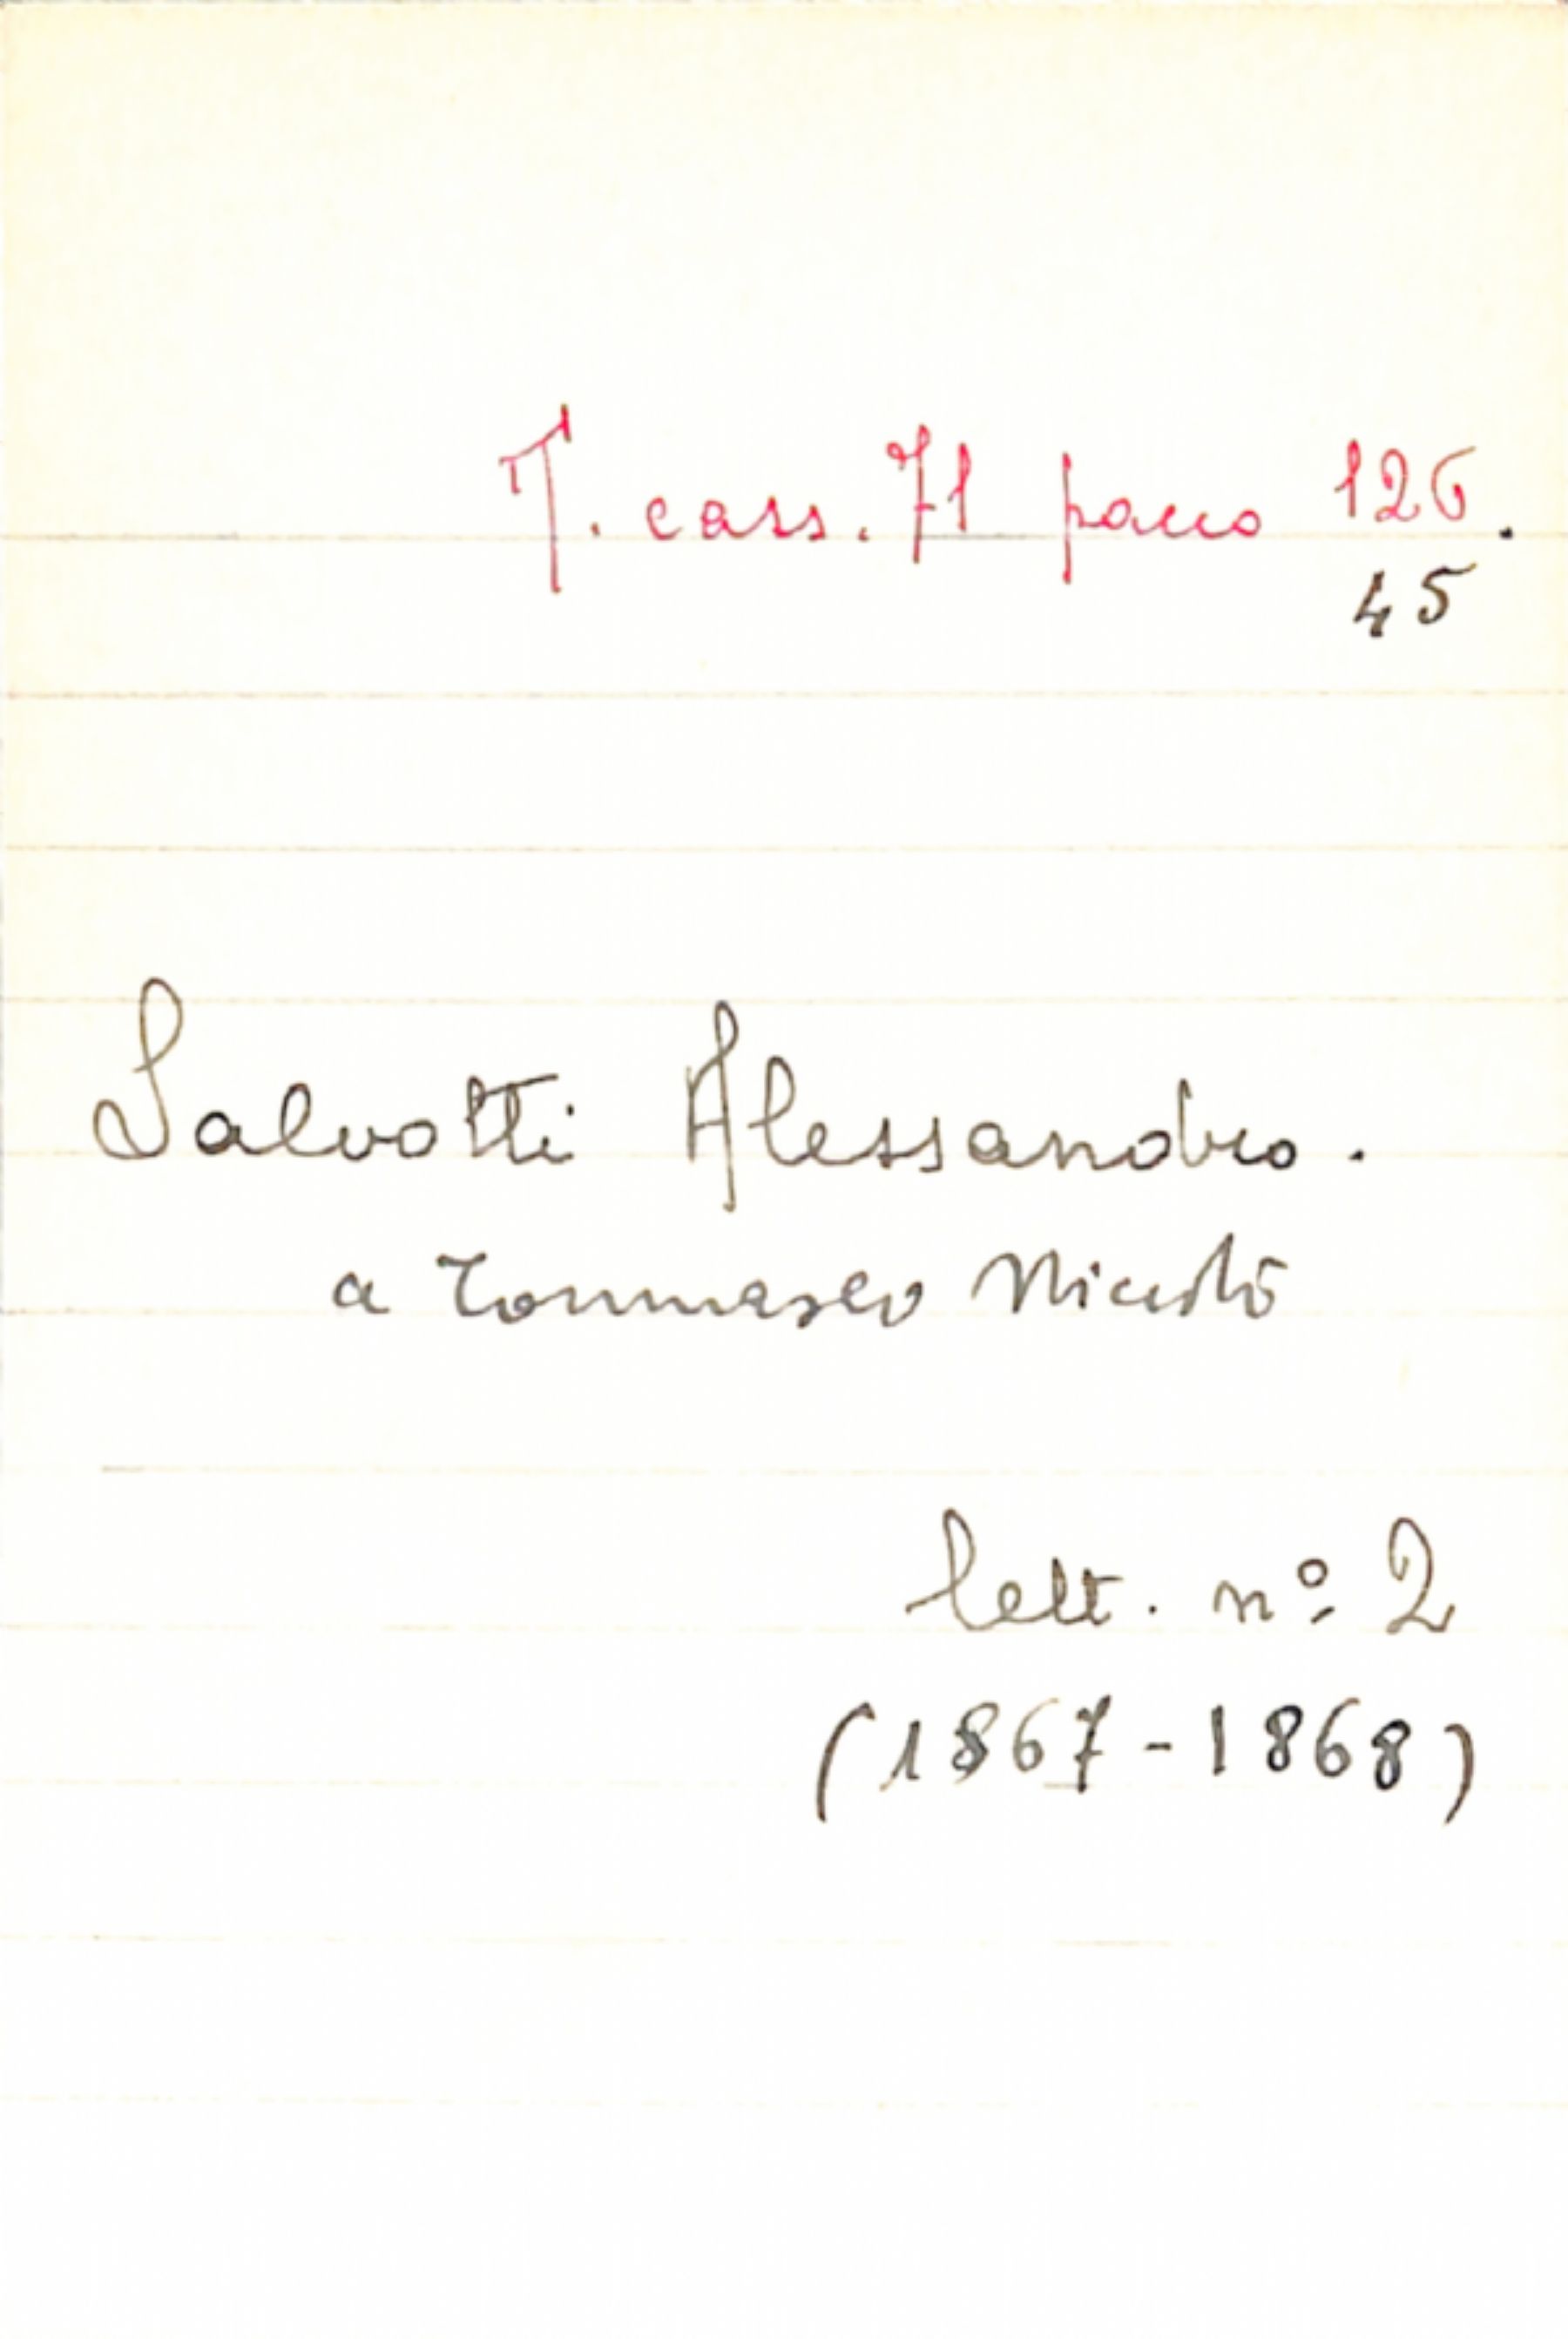 T. cass. 71 pacco 126.
45
Salvotti Alessandro.
a Tommaseo Nicolò
lett. nº 2
(1867-1868)